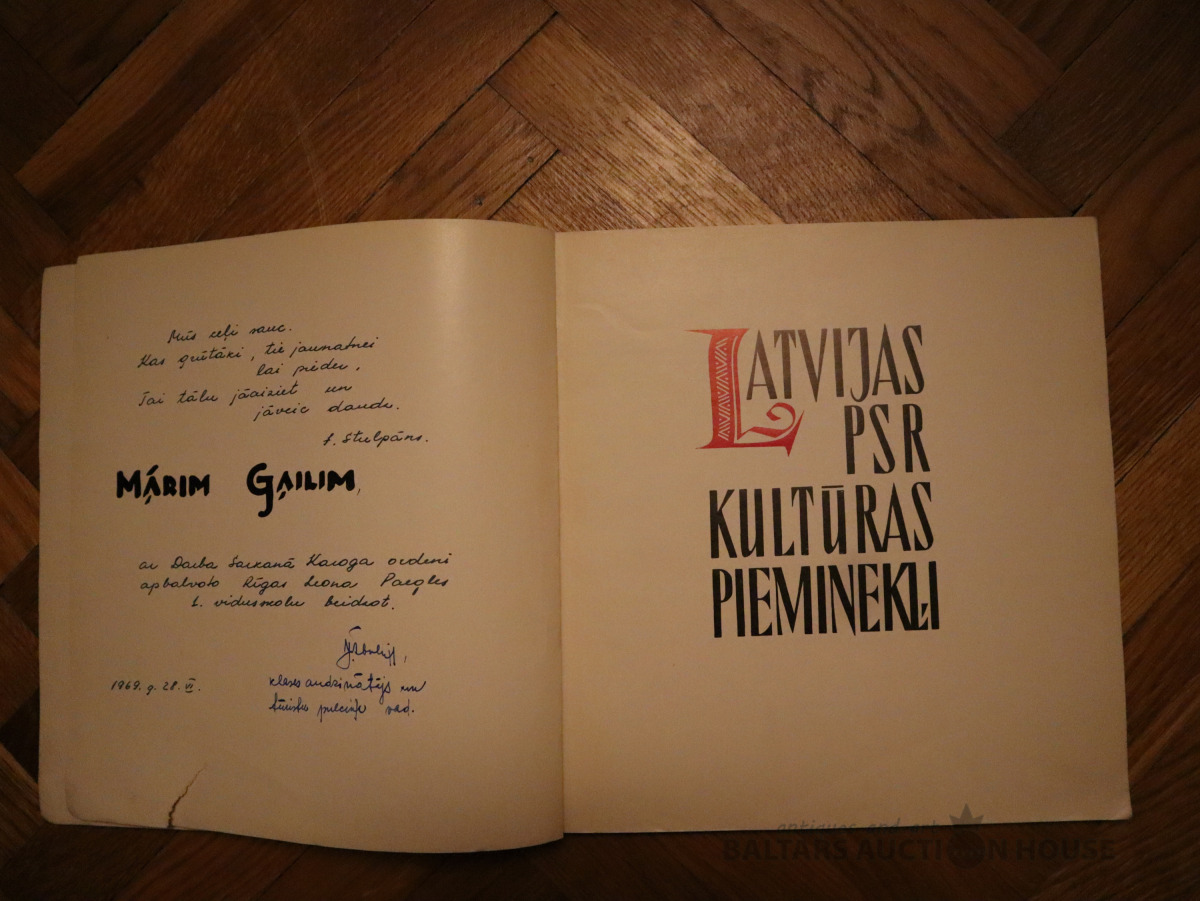 Mūs ceļi sauc.
Kas grūtāki, tie jaunatnei
lai pieder.
Tai tālu jāaiziet un
jāveic daudz.
J. Stulpāns.
MĀRIM GAILIM,
ar Darba Sarkanā Karoga ordeni
apbalvoto Rīgas Leona Paegles
1. vidusskolu beidzot.
klases audzinātājs un
tūristu pulciņa vad.
1969. g. 28. VI.
LATVIJAS
PSR
KULTŪRAS
PIEMINEKĻI
antiques and art
BALTARS AUCTION HOUSE